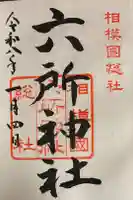 相模國総社
六所神社
令和八年
一月四日
相模國
総社